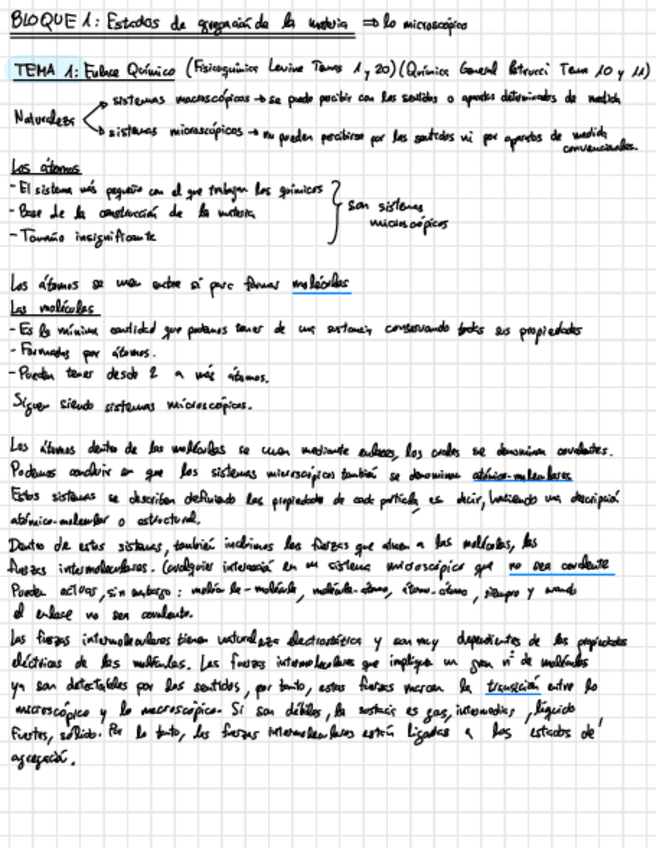 BLOQUE 1: Estados de agregación de la materia ⇒ lo microscópico
TEMA 1: Enlace Químico (Fisicoquímica Levine Temas 1 y 20) (Química General Petrucci Tema 10 y 11)
Naturaleza
sistemas macroscópicos → se puede percibir con los sentidos o aparatos determinados de medida
sistemas microscópicos → no pueden percibirse por los sentidos ni por aparatos de medida
convencionales.
Los átomos
- El sistema más pequeño con el que trabajan los químicos
- Base de la construcción de la materia
- Tamaño insignificante
son sistemas
microscópicos
Los átomos se unen entre sí para formar moléculas
Las moléculas
- Es la mínima cantidad que podemos tener de una sustancia, conservando todas sus propiedades
- Formadas por átomos.
- Pueden tener desde 2 a más átomos.
Siguen siendo sistemas microscópicos.
Los átomos dentro de las moléculas se unen mediante enlaces, los cuales se denominan covalentes.
Podemos concluir en que los sistemas microscópicos también se denominan atómico-moleculares
Estos sistemas se describen definiendo las propiedades de cada partícula, es decir, haciendo una descripción
atómico-molecular o estructural.
Dentro de estos sistemas, también incluimos las fuerzas que atraen a las moléculas, las
fuerzas intermoleculares. (Cualquier interacción en un sistema microscópico que no sea covalente
Pueden actuar, sin embargo: molécula-molécula, molécula-átomo, átomo-átomo, siempre y cuando
el enlace no sea covalente.
Las fuerzas intermoleculares tienen naturaleza electrostática y son muy dependientes de las propiedades
eléctricas de las moléculas. Las fuerzas intermoleculares que implican un gran nº de moléculas
ya son detectables por los sentidos, por tanto, estas fuerzas marcan la transición entre lo
microscópico y lo macroscópico. Si son débiles, la sustancia es gas, intermedias, líquido
Fuertes, sólido. Por lo tanto, las fuerzas intermoleculares están ligadas a los estados de
agregación.